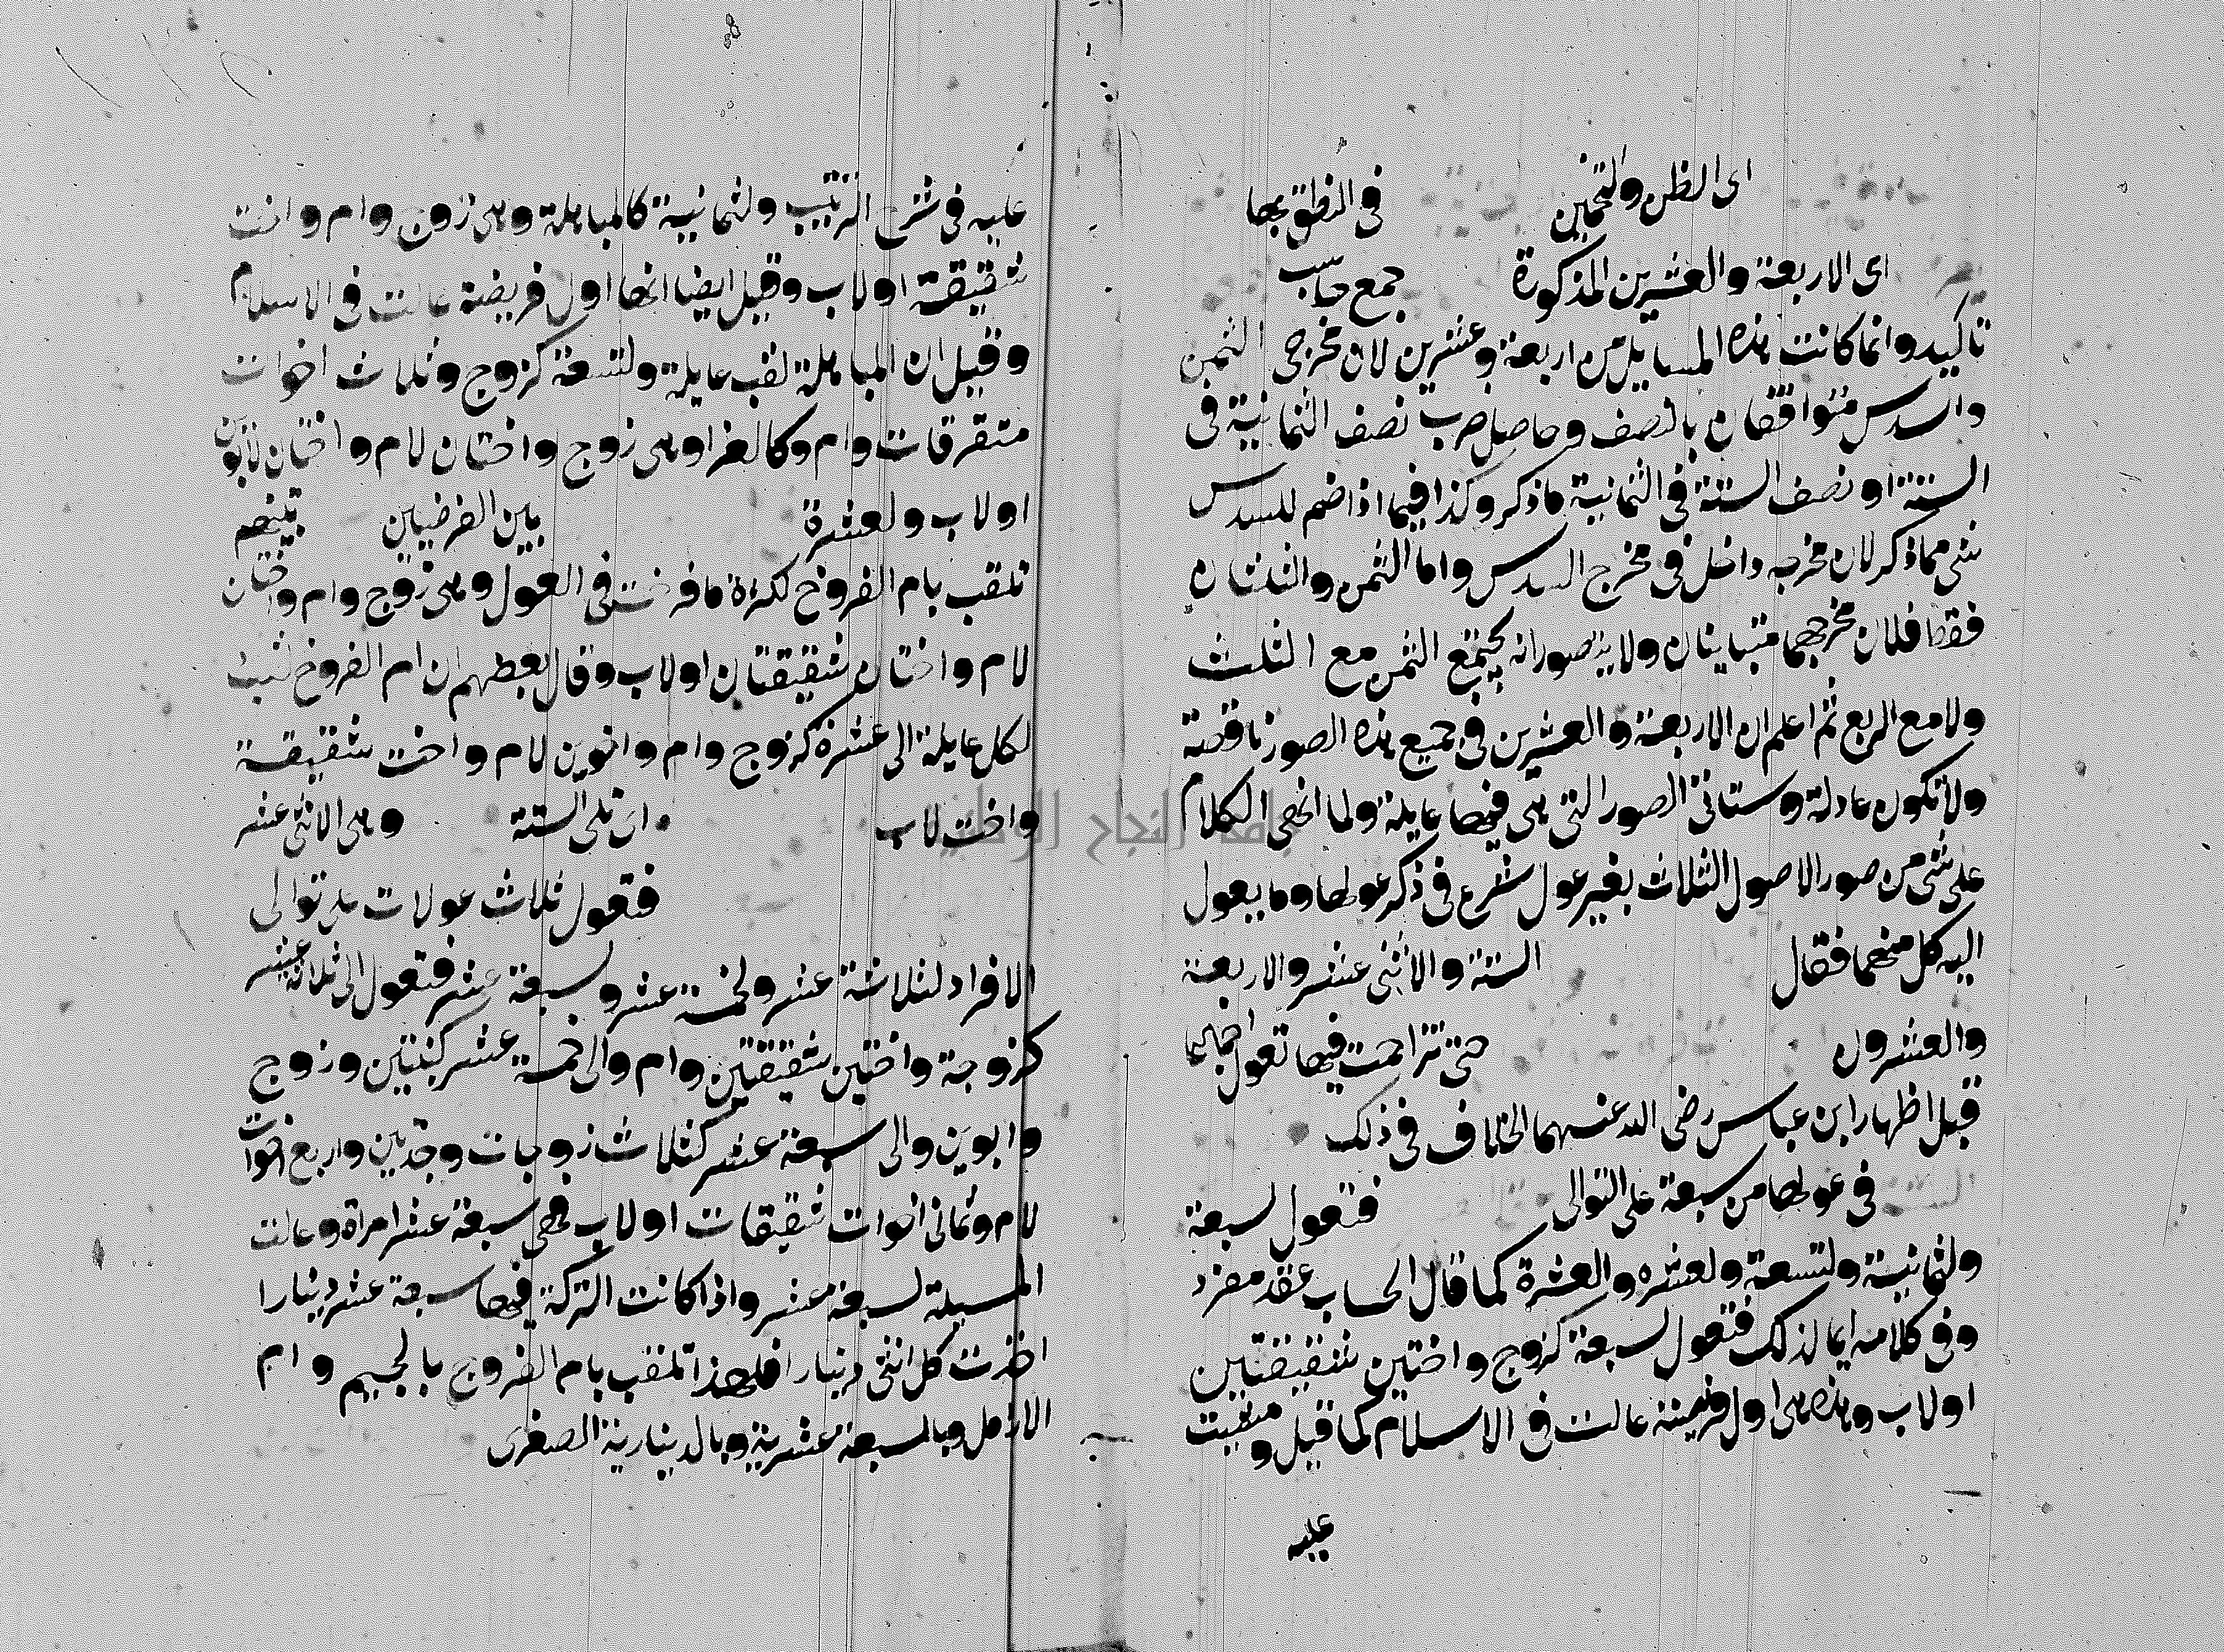 اى الظن والتخمين في النطق بها
اى الاربعة والعشرين المذكورة جمع حاسب
تاكيد وانما كانت هذه المسايل من اربعة وعشرين لان مخرجى الثمن
والسدس متوافقان بالنصف وحاصل ضرب نصف الثمانية في
الستة او نصف الستة في الثمانية ماذكر وكذا فيما اذا ضم للسدس
شى مما ذكر لان مخرجه داخل في مخرج السدس واما الثمن والثلثان
فقط فلان مخرجهما متباينان ولا يتصور انه يجتمع الثمن مع الثلث
ولا مع الربع ثم اعلم ان الاربعة والعشرين في جميع هذه الصور ناقصة
ولا تكون عادلة وستاتى الصور التى هى فيها عايلة ولما انهى الكلام
على شى من صور الاصول الثلاث بغير عول شرع في ذكر عولها وما يعول
اليه كل منهما فقال الستة والاثنى عشر والاربعة
والعشرون حتى تزاحمت فيها تعول اجماعا
قبل اظهار ابن عباس رضى الله عنهما الخلاف في ذلك
في عولها من سبعة على التوالى فتعول لسبعة
ولثمانية ولتسعة ولعشره والعشرة كما قال الحساب عقد مفرد
وفى كلامه ايما لذلك فتعول لسبعة كزوج واختين شقيقتين
او لاب وهذه هى اول فريضة عالت في الاسلام كما قيل و
عليه
عليه في شرح الترتيب ولثمانية كالمباهلة وهى زوج وام واخت
شقيقة او لاب وقيل ايضا انها اول فريضة عالت في الاسلام
وقيل ان المباهلة لقب عايلة ولتسعة كزوج وثلاث اخوات
متفرقات وام وكالغرا وهى زوج واختان لام واختان لابوين
او لاب ولعشرة بين الفرضيين
تلقب بام الفروخ لكثرة ما فرخت في العول وهى زوج وام واختان
لام واختان شقيقتان او لاب وقال بعضهم ان ام الفروخ لقب
لكل عايلة الى عشرة كزوج وام واخوين لام واخت شقيقة
واخت لاب اى تلى الستة وهى الاثنى عشر
فتعول ثلاث عولات على توالى
الافراد لثلاثة عشر ولخمسة عشر ولسبعة عشر فتعول الى ثلاثة عشر
كزوجة واختين شقيقتين وام والى خمسة عشر كبنتين وزوج
وابوين والى سبعة عشر كثلاث زوجات وجدتين واربع اخوات
لام وثمانى اخوات شقيقات او لاب فهى سبعة عشر امراة وعالت
المسيلة لسبعة عشر واذا كانت التركة فيها سبعة عشر دينارا
اخذت كل انثى دينارا فلهذا تلقب بام الفروج بالجيم وام
الارامل وبالسبعة عشرية وبالدينارية الصغرى
جامعة النجاح الوطنية